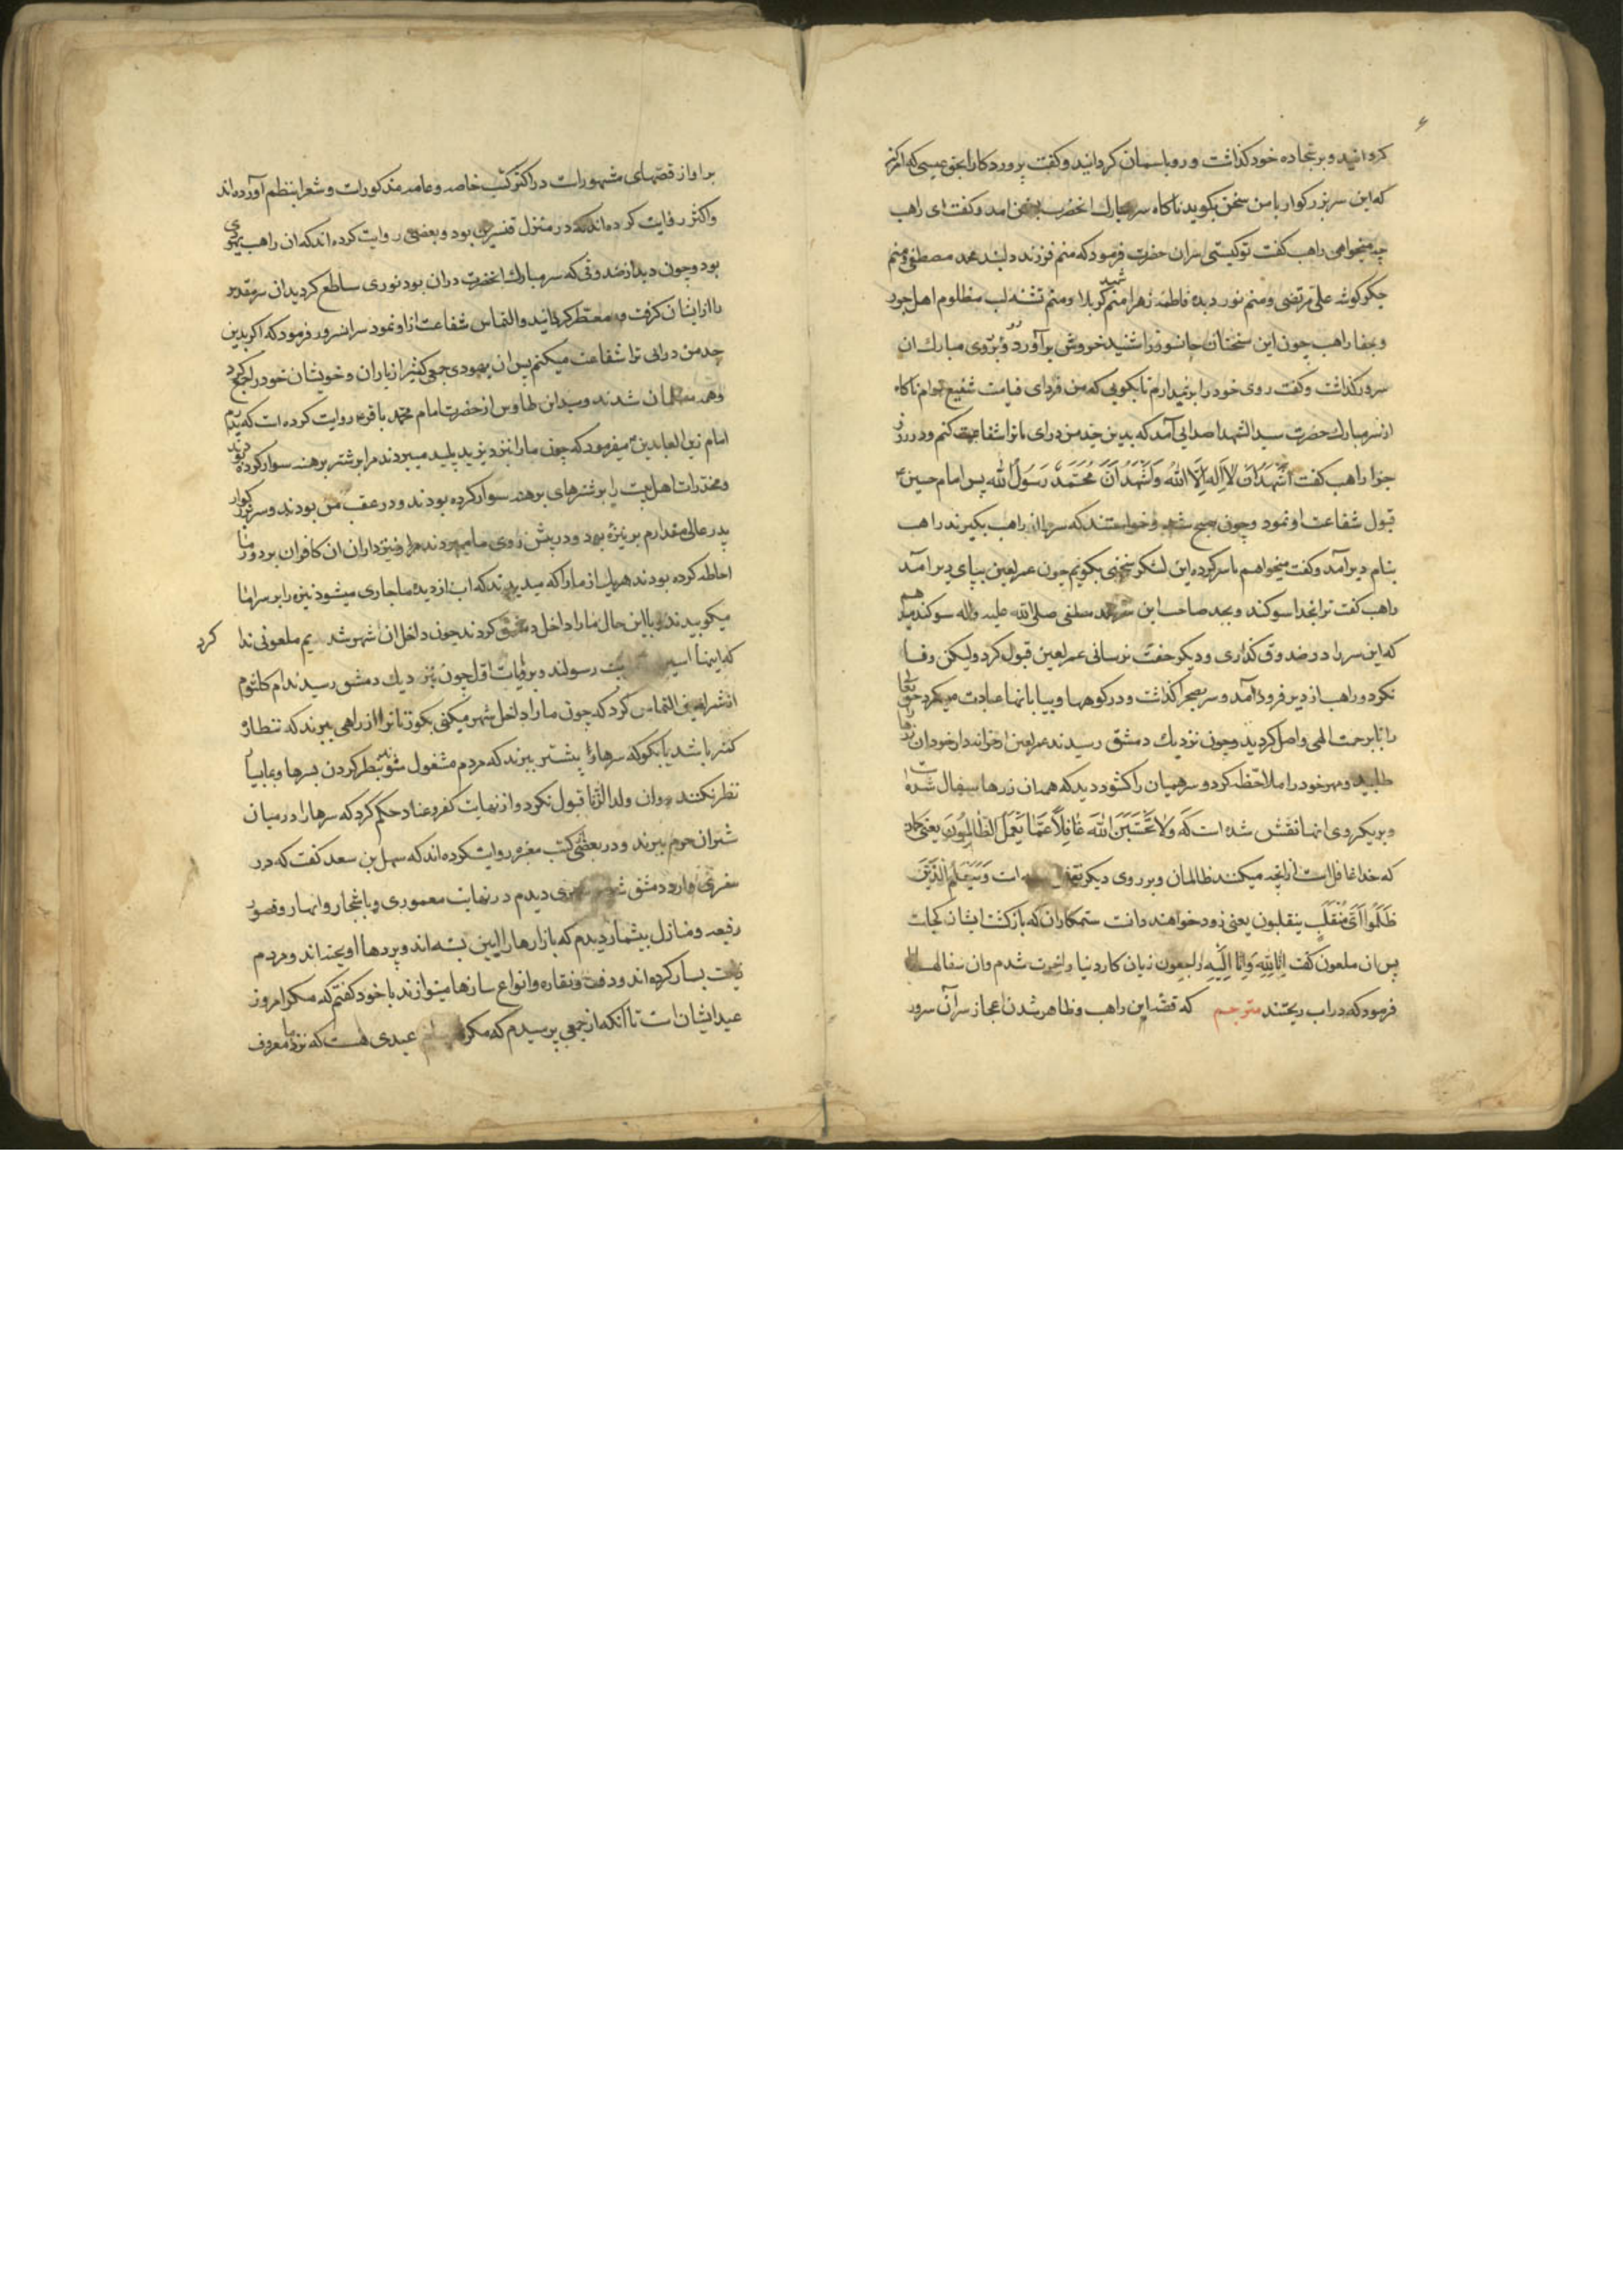 کردانید و بر سجاده خود کذاشت و رو باسمان کردانید و کفت پروردکارا بحق عیسی که امر کن
که این سر بزرکوار با من سخن بکوید ناکاه سر مبارک انحضرت بسخن امد و کفت ای راهب
چه میخواهی راهب کفت تو کیستی سر ان حضرت فرمود که منم فرزند دلبند محمد مصطفی و منم
جکر کوشه علی مرتضی و منم نور دیده فاطمه زهرا منم شهید کربلا و منم تشنه لب مظلوم اهل جور
و جفا راهب چون این سخنان جانسوز را شنید خروش برآورد و رو بر روی مبارک ان
سرور کذاشت و کفت روی خود را برنمیدارم تا بکویی که من فردای قیامت شفیع توام ناکاه
از سر مبارک حضرت سید الشهدا صدایی آمد که بدین جد من درای تا ترا شفاعت کنم و در روز
جزا راهب کفت اَشْهَدُ اَنْ لا اِلهَ اِلَّا اللهُ وَاَشْهَدُ اَنَّ مُحَمَّدَ رَسُولُ الله پس امام حسین ع
قبول شفاعت او نمود و چون صبح شد و خواستند که سر را از راهب بکیرند راهب
ببام دیر آمد و کفت میخواهم با سرکرده این لشکر سخنی بکویم چون عمر لعین بپای دیر آمد
راهب کفت ترا بخدا سوکند و بجد صاحب این سر محمد مصطفی صلی الله علیه واله سوکند میدهم
که این سر را در صندوق کذاری و دیکر جفت نرسانی عمر لعین قبول کرد ولیکن وفا
نکرد و راهب از دیر فرود آمد و سر بصحرا کذاشت و در کوهها و بیابانها عبادت میکرد حق تعالی
را تا برحمت الهی واصل کردید و چون نزدیک دمشق رسیدند عمر لعین از خزانه دار خود ان زرها را
طلبید و مهر خود را ملاحظه کرد و سر همیان را کشود دید که همه ان زرها سفال شده است
و بر یکروی انها نقش شده است که وَلا تَحْسَبَنَّ اللهَ غافِلاً عَمّا یَعْمَلُ الظّالِمُونَ یعنی
که خدا غافل است از انچه میکنند ظالمان و بر روی دیکر نقش است وَسَیَعْلَمُ الَّذینَ
ظَلَمُوا اَیَّ مُنْقَلَبٍ ینقلبون یعنی زود خواهند دانست ستمکاران که بازکشت ایشان کجاست
پس ان ملعون کفت اِنّا لِلّهِ وَاِنّا اِلَیْهِ راجعون زیان کار دنیا و اخرت شدم و ان سفالها را
فرمود که در اب ریختند مترجم که قصه این راهب و ظاهر شدن اعجاز سر آن سرور
بر او از قصهای مشهور است در اکثر کتب خاصه و عامه مذکور است و شعرا بنظم آورده اند
و اکثر روایت کرده اند که در منزل قنسرین بود و بعضی روایت کرده اند که ان راهب یهودی
بود و چون دید از صندوقی که سر مبارک انحضرت در ان بود نوری ساطع کردید ان سر مقدس
را از ایشان کرفت و معطر کردانید و التماس شفاعت از او نمود سر انسرور فرمود که اکر بدین
جد من درائی ترا شفاعت میکنم پس ان یهودی جمعی کثیر از یاران و خویشان خود را جمع کرد
و همه مسلمان شدند و سید ابن طاوس از حضرت امام محمد باقر ع روایت کرده است که پدرم
امام زین العابدین ع میفرمود که چون ما را بنزد یزید پلید میبردند مرا بر شتر برهنه سوار کرده بودند
و مخدرات اهل بیت را بر شترهای برهنه سوار کرده بودند و در عقب من بودند و سر بزرکوار
پدر عالی مقدارم بر نیزه بود و در پیش روی ما میبردند و نیزه داران ان کافران بر دور ما
احاطه کرده بودند هر یک از ما را که میدیدند که اب از دیده ما جاری میشود نیزه را بر سر انها
میکوبیدند و با این حال ما را داخل دمشق کردند چون داخل ان شهر شدیم ملعونی ندا کرد
که اینها اسیر بیت رسولند و بروایت اول چون نزدیک دمشق رسیدند ام کلثوم
از شمر لعین التماس کرد که چون ما را داخل شهر میکنی بکو تا ما را از راهی ببرند که نظاره
کمتر باشد یا بکو که سرها را پیشتر ببرند که مردم مشغول شوند بنظر کردن بسرها و بما بسیار
نظر نکنند و ان ولد الزنا قبول نکرد و از نهایت کفر و عناد حکم کرد که سرها را در میان
شتران حرم ببرند و در بعضی کتب معتبره روایت کرده اند که سهل بن سعد کفت که در
سفری وارد دمشق شهری دیدم در نهایت معموری و با اشجار و انهار و قصور
رفیعه و منازل بیشمار دیدم که بازارها را آیین بسته اند و پردها اویخته اند و مردم
زینت بسیار کرده اند و دف و نقاره و انواع سازها مینوازند با خود کفتم که مکر امروز
عید ایشان است تا انکه از جمعی پرسیدم که مکر عیدی هست که نزد ما معروف